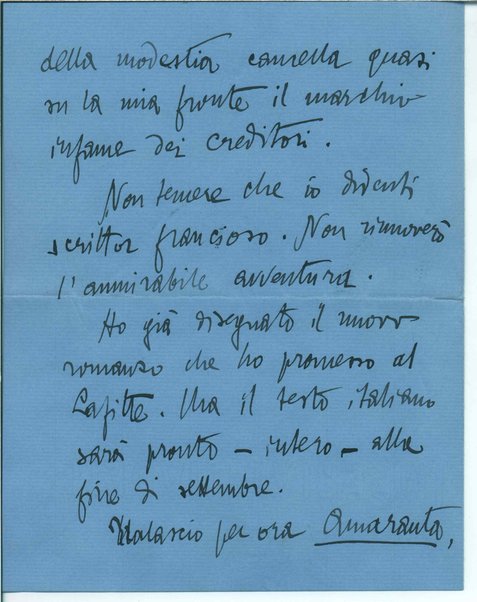 della modestia cancella quasi
su la mia fronte il marchio
infame dei creditori.
Non temere che io diventi
scrittor francioso. Non rinnoverò
l'ammirabile avventura.
Ho già disegnato il nuovo
romanzo che ho promesso al
Lafitte. Ma il testo italiano
sarà pronto – intero – alla
fine di settembre.
Tralascio per ora Amaranta,